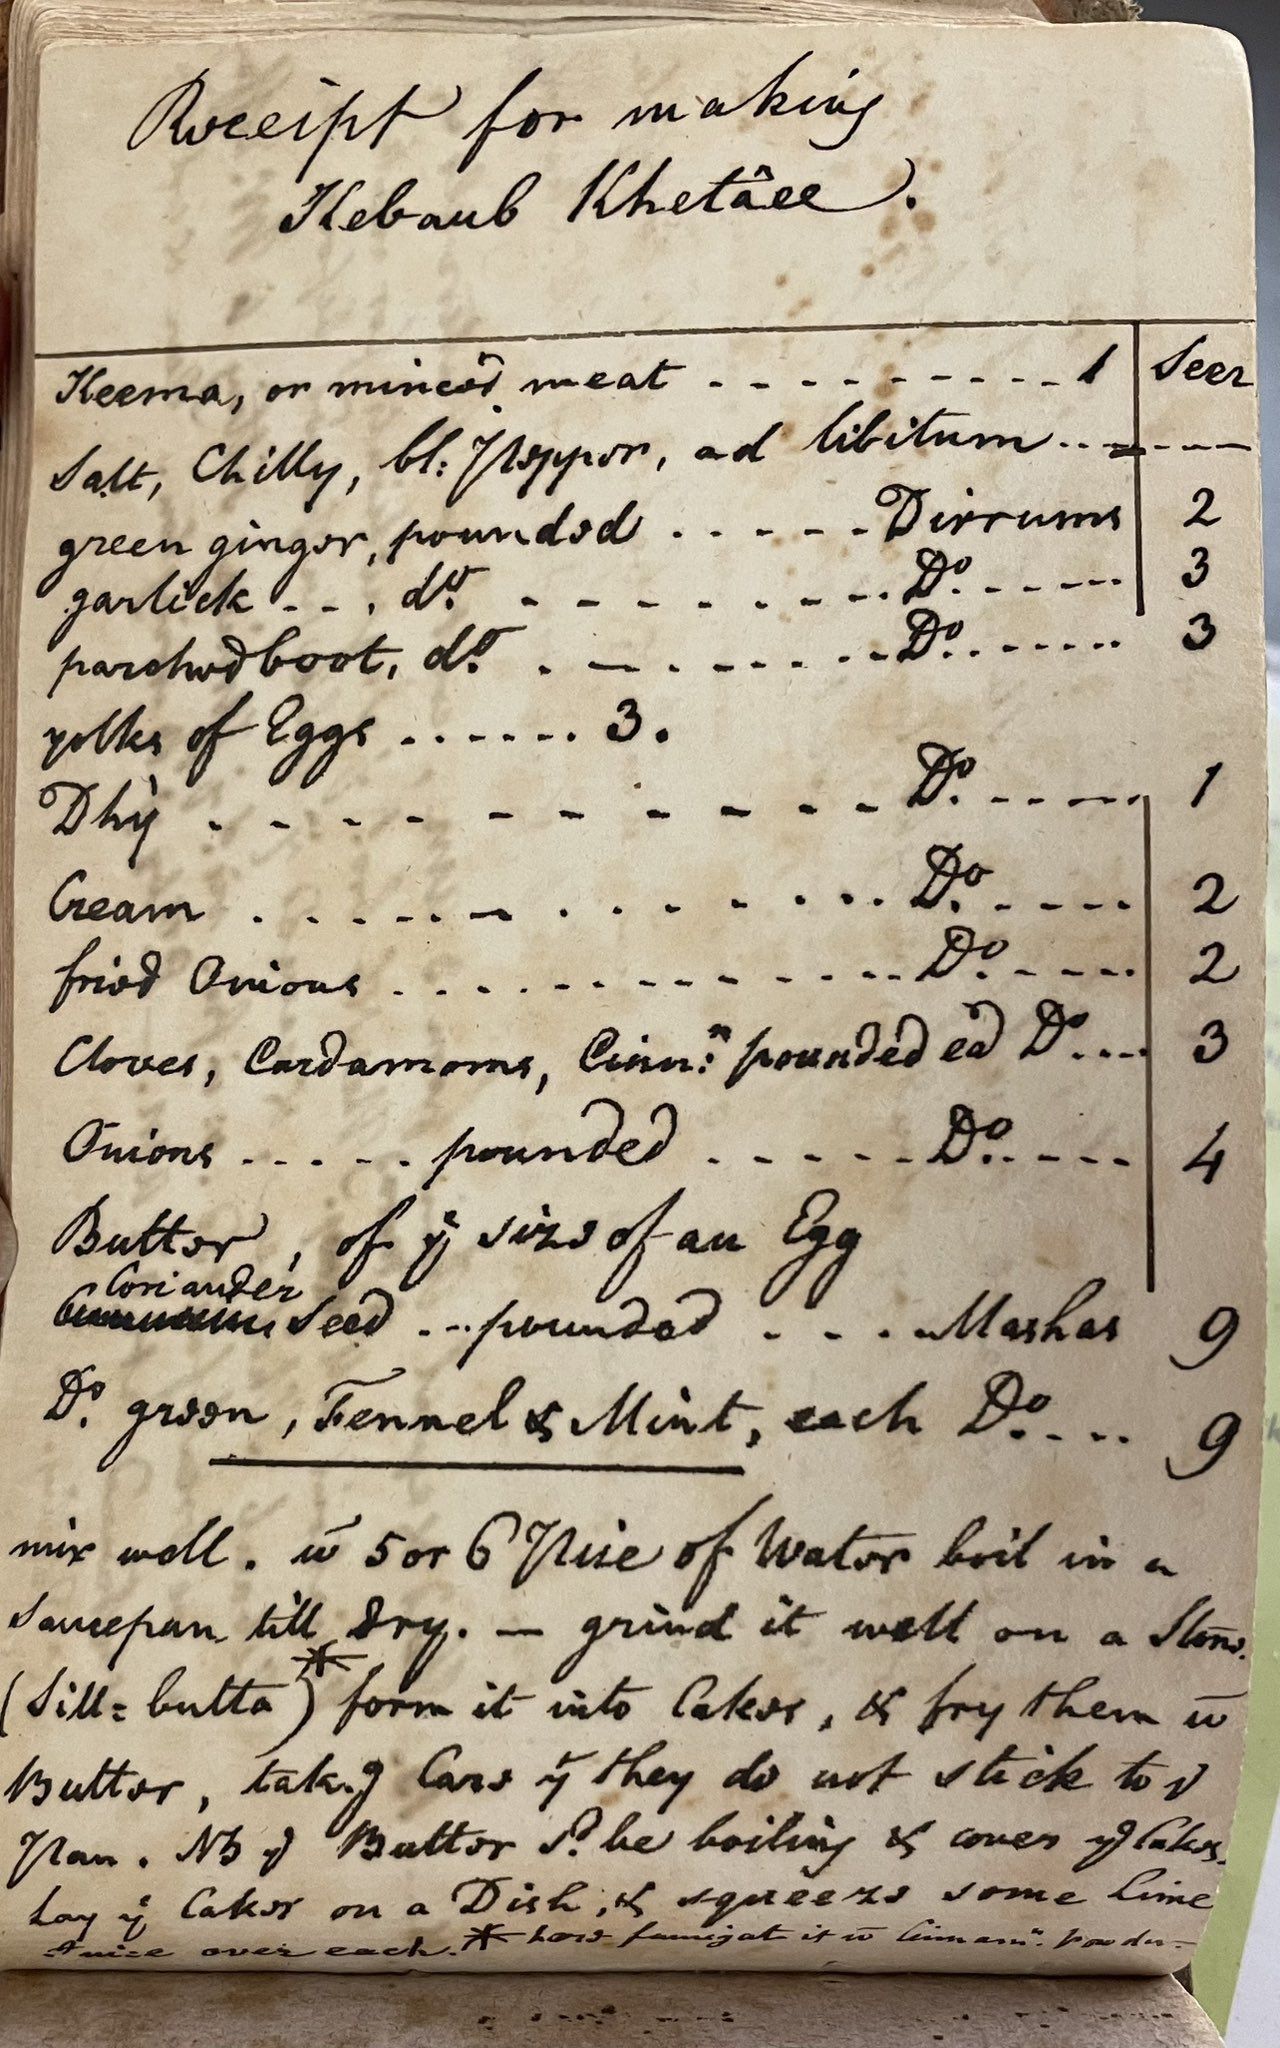 Receipt for making
Kebaub Khetâee.
Keema, or minced meat - - - - - - - - - - 1 Seer
Salt, Chilly, bl: Pepper, ad libitum - - - - - -
green ginger, pounded - - - - - Dirrums 2
garlick - - - do. - - - - - - - - - Do. - - - - 3
parched boot, do. - - - - - - - - Do. - - - - 3
yolks of Eggs - - - - - - 3.
Dhỳ - - - - - - - - - - Do. - - - - 1
Cream - - - - - - - - - - - - Do. - - - - 2
fried Onions - - - - - - - - - - - - Do. - - - - 2
Cloves, Cardamoms, Cinn:n pounded ea Do. - - - 3
Onions - - - - - pounded - - - - - Do. - - - - 4
Butter, of ye size of an Egg
Coriander
Seed - - pounded - - - - Mashas 9
Do. green, Fennel & Mint, each Do. - - - 9
mix well. w̄ 5 or 6 Pice of Water boil in a
Saucepan till dry. — grind it well on a Stone.
(Sill= butta)* form it into Cakes, & fry them w̄
Butter, tak.g Care yt they do not stick to ye
Pan. NB ye Butter sd. be boiling & cover ye Cakes.
Lay ye Cakes on a Dish, & squeeze some Lime
Juice over each. * here fumigat it w̄ Cinnamn. powder-